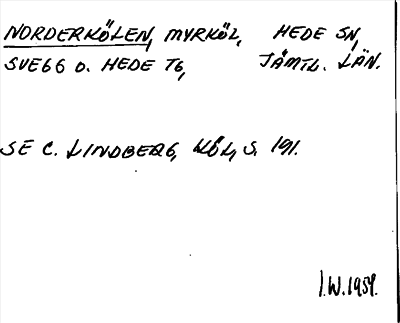 NORDERKÖLEN, MYRKÖL, HEDE SN,
SVEGG O. HEDE TG, JÄMTL. LÄN.
SE C. LINDBERG, KÖL, S. 191.
I.W.1959.